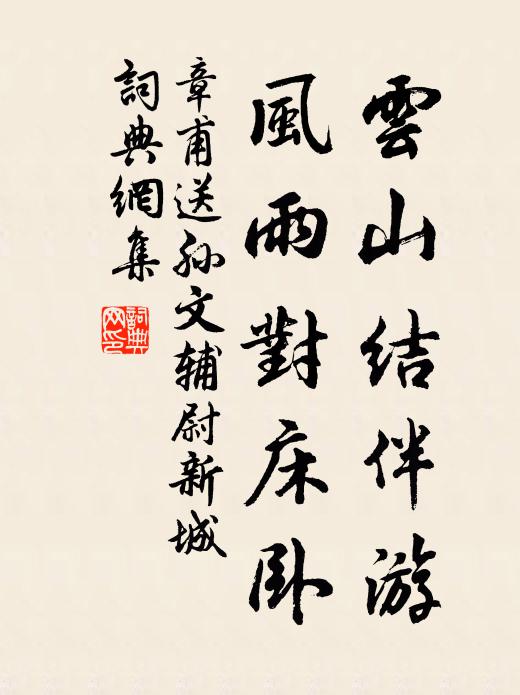 雲山結伴游
風雨對床卧
章甫送孙文辅尉新城
詞典網集
詞典
网印